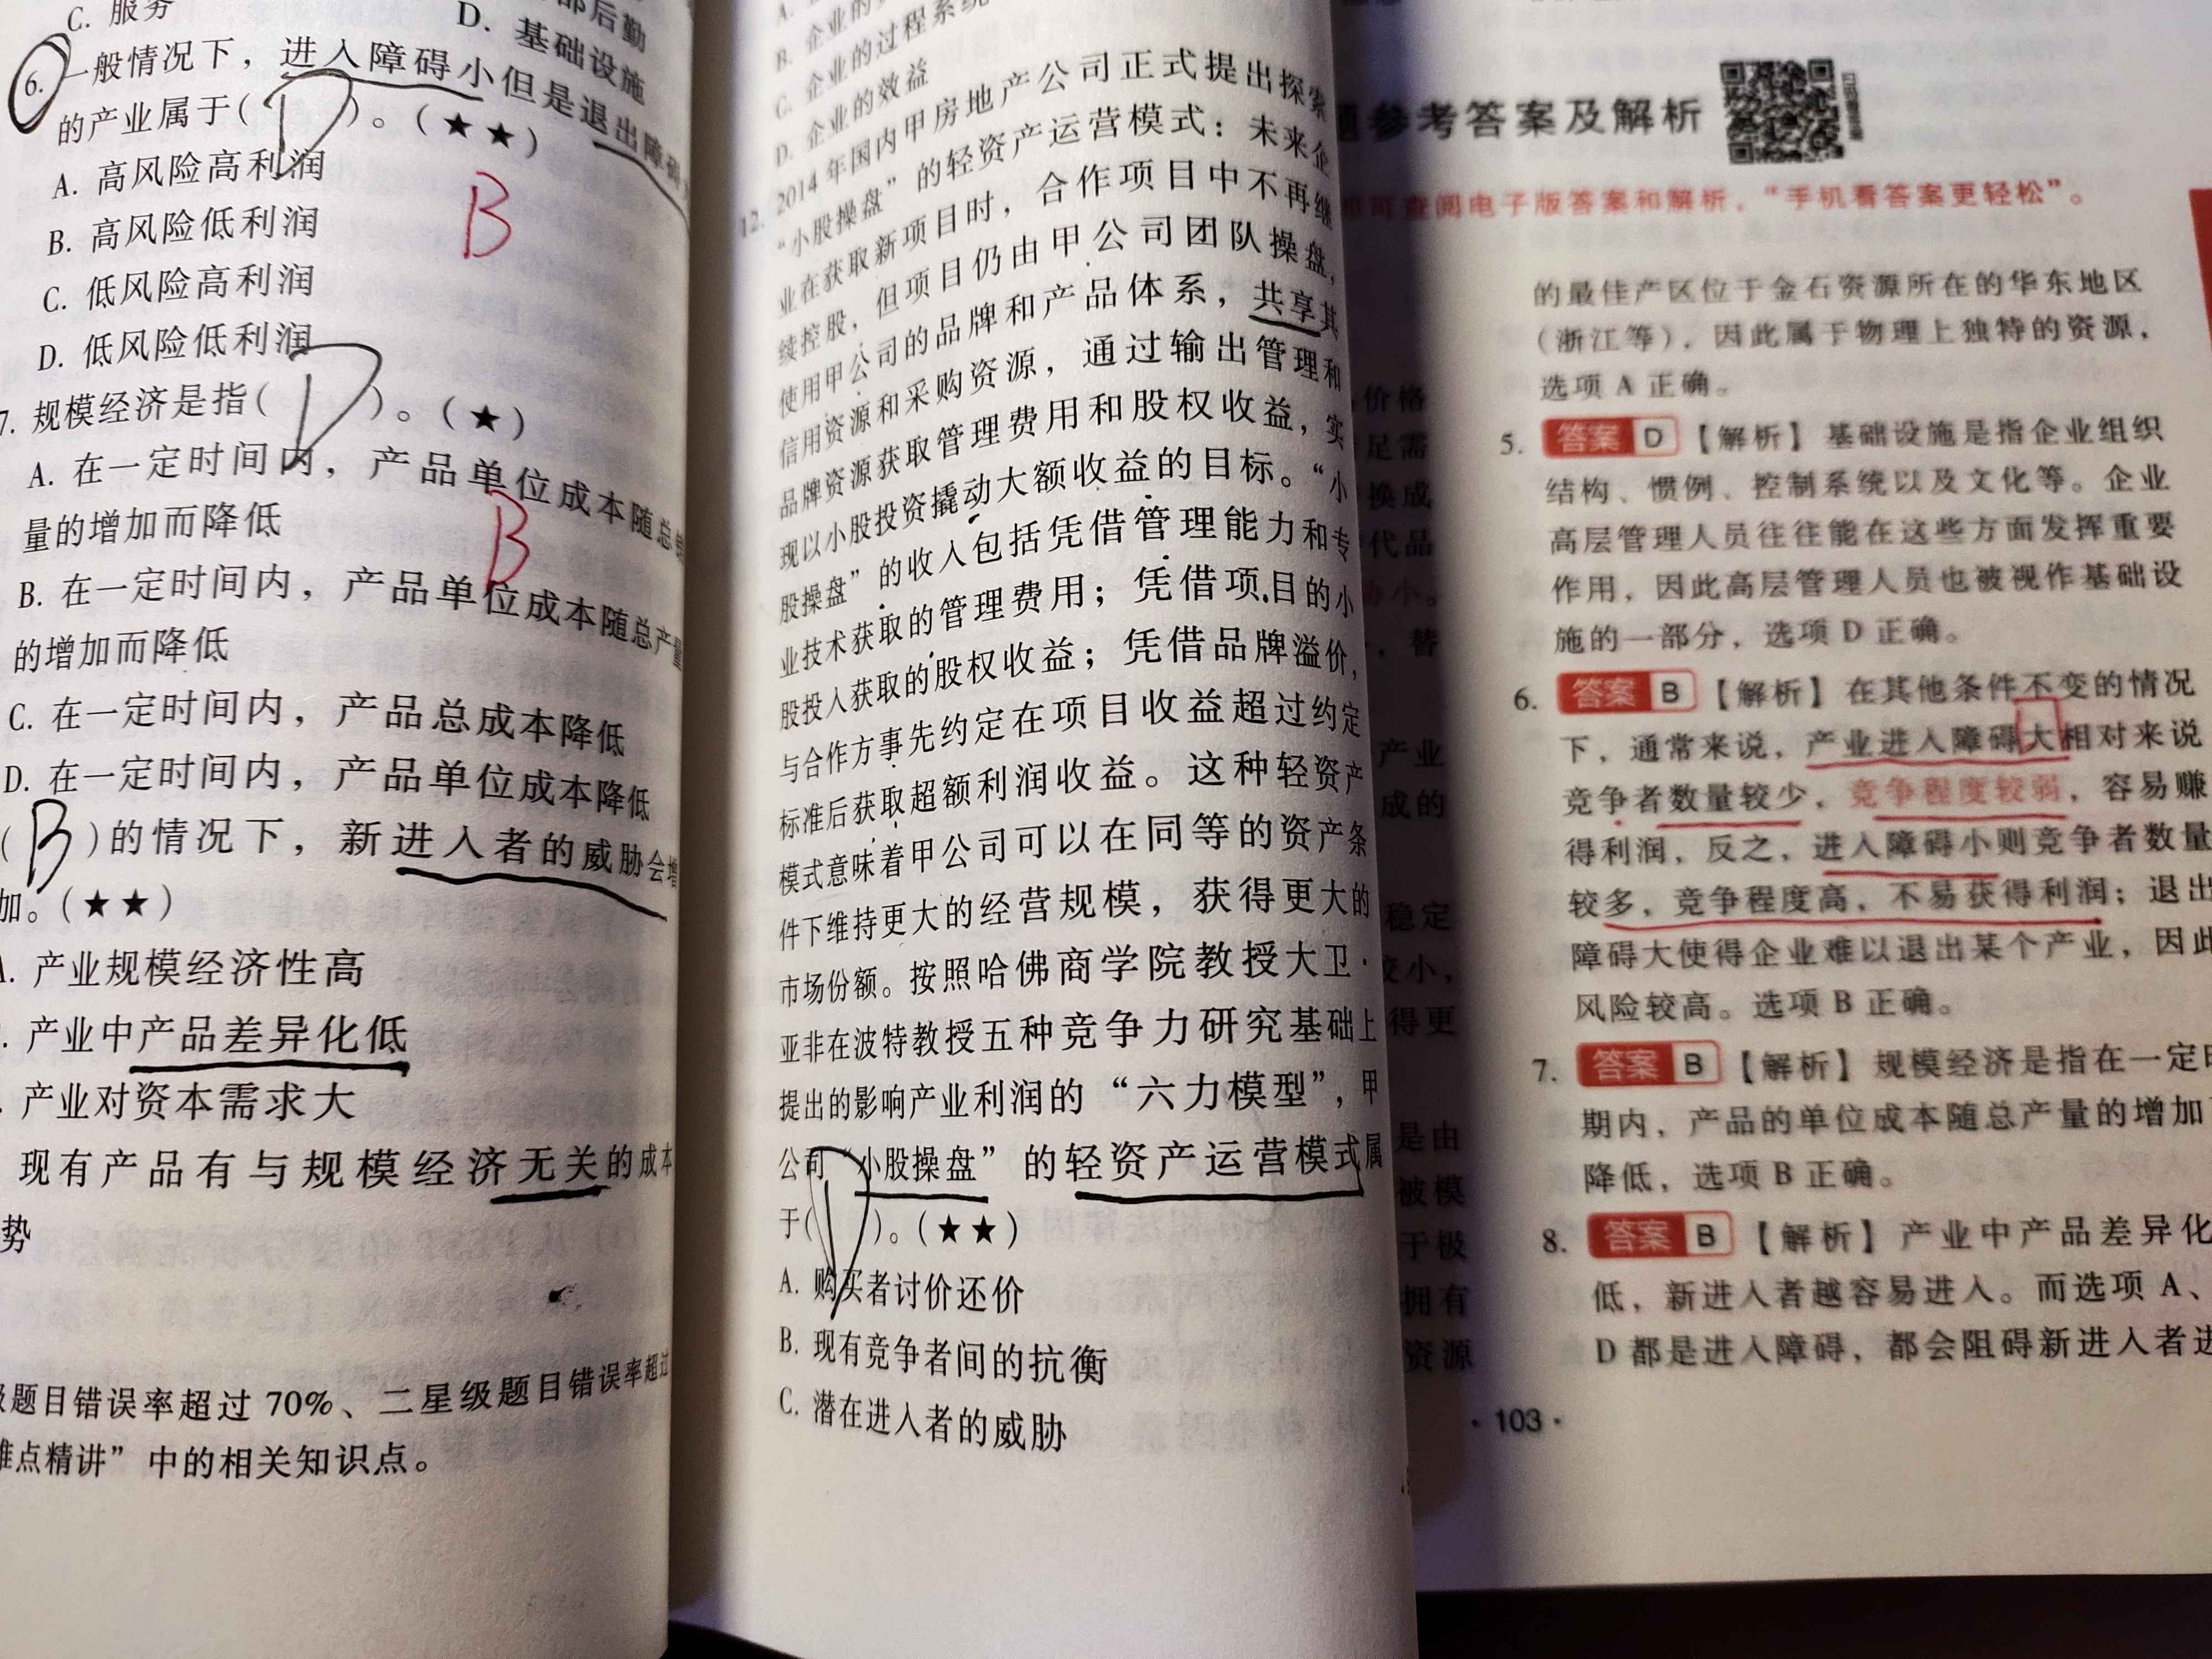 C. 服务
部后勤
D. 基础设施
6. 一般情况下，进入障碍小但是退出障碍
的产业属于( D )。(★★)
A. 高风险高利润
B. 高风险低利润
B
C. 低风险高利润
D. 低风险低利润
7. 规模经济是指( D )。(★)
A. 在一定时间内，产品单位成本随总
量的增加而降低
B
B. 在一定时间内，产品单位成本随总产量
的增加而降低
C. 在一定时间内，产品总成本降低
D. 在一定时间内，产品单位成本降低
( B )的情况下，新进入者的威胁会增
加。(★★)
A. 产业规模经济性高
产业中产品差异化低
产业对资本需求大
现有产品有与规模经济无关的成本
势
题目错误率超过 70%、二星级题目错误率超过
难点精讲”中的相关知识点。
A.
B. 企业的
C. 企业的过程系统
D. 企业的效益
12. 2014年国内甲房地产公司正式提出探索
“小股操盘”的轻资产运营模式：未来企
业在获取新项目时，合作项目中不再继
续控股，但项目仍由甲公司团队操盘，
使用甲公司的品牌和产品体系，共享其
信用资源和采购资源，通过输出管理和
品牌资源获取管理费用和股权收益，实
现以小股投资撬动大额收益的目标。“小
股操盘”的收入包括凭借管理能力和专
业技术获取的管理费用；凭借项目的小
股投入获取的股权收益；凭借品牌溢价，
与合作方事先约定在项目收益超过约定
标准后获取超额利润收益。这种轻资产
模式意味着甲公司可以在同等的资产条
件下维持更大的经营规模，获得更大的
市场份额。按照哈佛商学院教授大卫·
亚非在波特教授五种竞争力研究基础上
提出的影响产业利润的“六力模型”，甲
公司“小股操盘”的轻资产运营模式属
于( D )。(★★)
A. 购买者讨价还价
B. 现有竞争者间的抗衡
C. 潜在进入者的威胁
价格
足需
换成
代品
小。
，替
产业
成的
稳定
较小，
得更
是由
被模
于极
拥有
资源
题参考答案及解析
即可查阅电子版答案和解析，“手机看答案更轻松”。
的最佳产区位于金石资源所在的华东地区
（浙江等），因此属于物理上独特的资源，
选项 A 正确。
5. 答案 D 【解析】基础设施是指企业组织
结构、惯例、控制系统以及文化等。企业
高层管理人员往往能在这些方面发挥重要
作用，因此高层管理人员也被视作基础设
施的一部分，选项 D 正确。
6. 答案 B 【解析】在其他条件不变的情况
下，通常来说，产业进入障碍大相对来说
竞争者数量较少，竞争程度较弱，容易赚
得利润，反之，进入障碍小则竞争者数量
较多，竞争程度高，不易获得利润；退出
障碍大使得企业难以退出某个产业，因此
风险较高。选项 B 正确。
7. 答案 B 【解析】规模经济是指在一定时
期内，产品的单位成本随总产量的增加
降低，选项 B 正确。
8. 答案 B 【解析】产业中产品差异化
低，新进入者越容易进入。而选项 A、
D 都是进入障碍，都会阻碍新进入者进
·103·